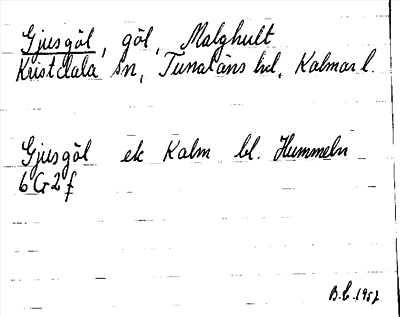 Gjusgöl, göl, Malghult
Kristdala sn, Tunaläns hd, Kalmar l.
Gjusgöl ek Kalm bl. Hummeln
6G2f
B.L. 1957